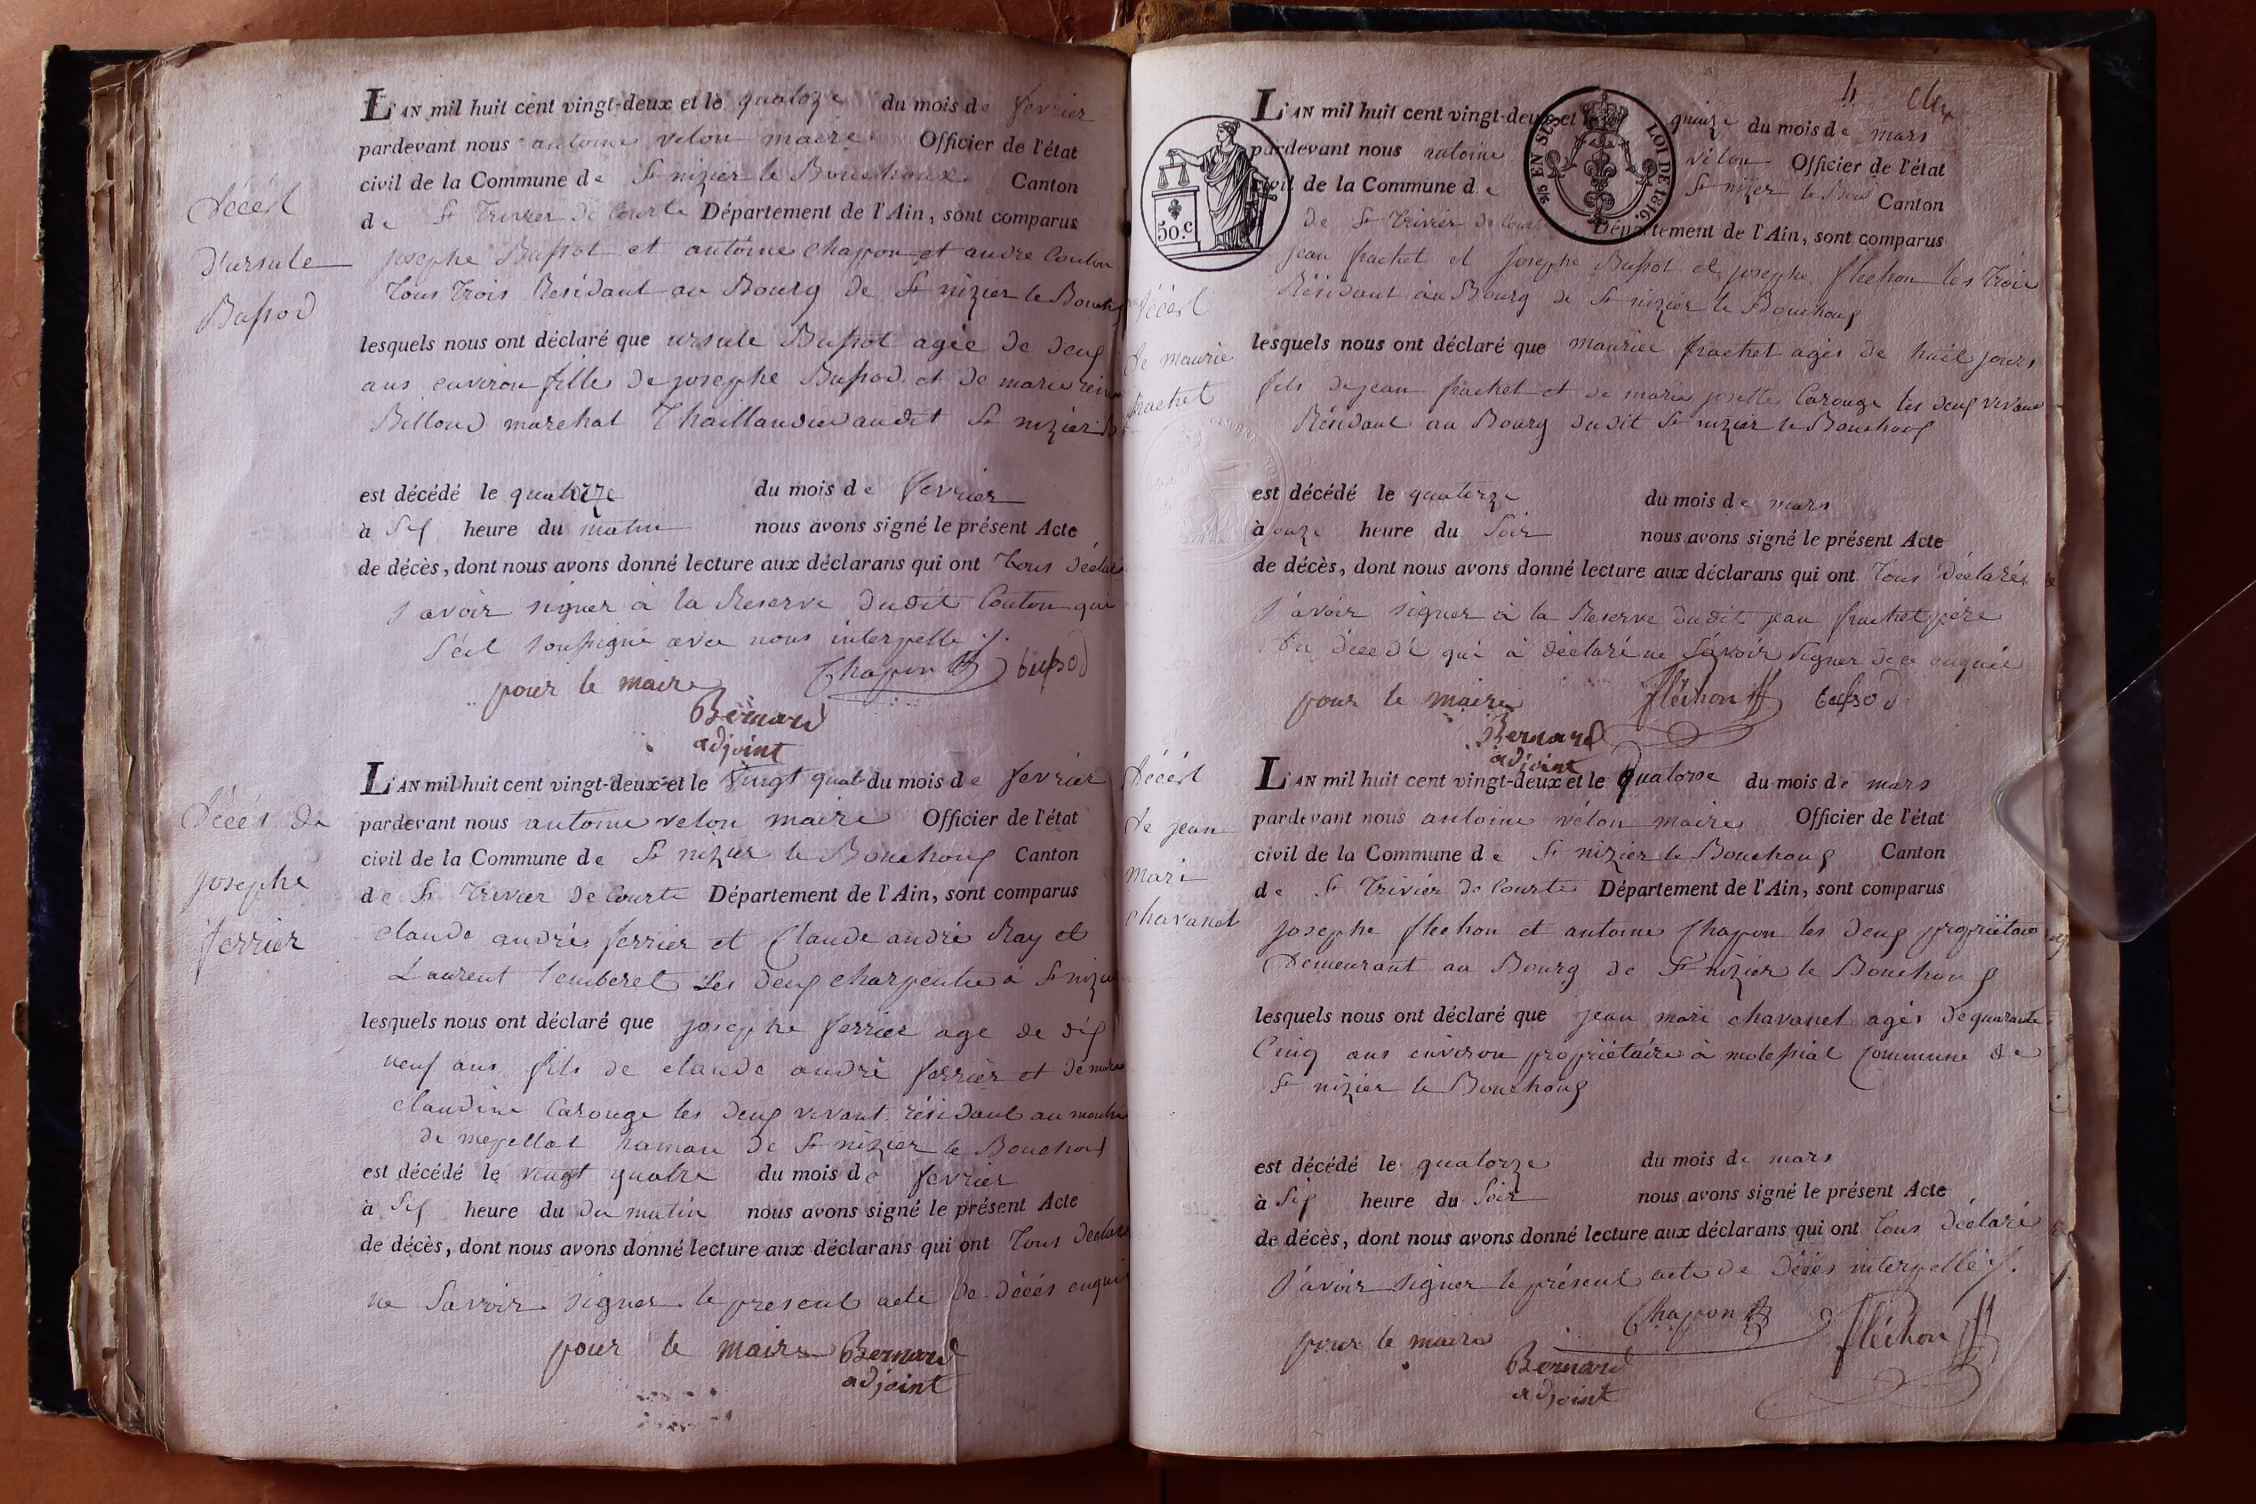 Décés
D'ursule
Bussod
L'AN mil huit cent vingt-deux et le quatoze du mois de fevrier
pardevant nous antoine velon maire Officier de l'état
civil de la Commune de St nizier le Bouchoux Canton
de St Trivier De Courte Département de l'Ain, sont comparus
josephe Bussot et antoine chapon et andre Couton
Tous Trois Residant au Bourg de St nizier le Bouch
lesquels nous ont déclaré que ursule Bussot agée de deux
ans environ fille de josephe Bussod et de marie
Billoud marchal Thaillandier audit St nizier
est décédé le quatorze du mois de fevrier
à Six heure du matin nous avons signé le présent Acte
de décès, dont nous avons donné lecture aux déclarans qui ont Tous Déclaré
savoir signer a la Reserve dudit Couton qui
soussigné avec nous interpelle
pour le maire Chapon bussod
Bernard
adjoint
Décés de
josephe
ferrier
L'AN mil huit cent vingt-deux et le vingt quat du mois de fevrier
pardevant nous antoine velon maire Officier de l'état
civil de la Commune de St nizier le Bouchoux Canton
de St Trivier De Courte Département de l'Ain, sont comparus
claude andré ferrier et Claude andré Ray et
Laurent Les deux charpentier a St nizier
lesquels nous ont déclaré que josephe ferrier age de dix
neuf ans fils de claude andré ferrier et de marie
claudine Carouge les deux vivant résidant au
de hamau de St nizier le Bouchoux
est décédé le vingt quatre du mois de fevrier
à Six heure du du matin nous avons signé le présent Acte
de décès, dont nous avons donné lecture aux déclarans qui ont Tous Déclaré
ne Savoir signer le present acte de décés enquis
pour le maire Bernard
adjoint
4
50.c
EN SUS
LOI DE 1816.
Décést
de maurie
frachet
L'AN mil huit cent vingt-deux et le quinze du mois de mars
pardevant nous antoine vélon Officier de l'état
civil de la Commune de St nizier le Bou Canton
De St Trivier de Court Département de l'Ain, sont comparus
jean frachet et josephe Bussot et josephe flechon les trois
Résidant au Bourg de St nizier le Bouchoux
lesquels nous ont déclaré que maurice frachet agés de huit jours
fils de jean frachet et de marie josette Carouge les deux vivant
Résidant au Bourg dudit St nizier le Bouchoux
est décédé le quatorze du mois de mars
à onze heure du Soir nous avons signé le présent Acte
de décès, dont nous avons donné lecture aux déclarans qui ont Tous Déclarés
savoir signer à la Reserve dudit jean frachet pére
du décédé qui à déclaré ne Savoir signer de ce enquis
pour le maire fléchon bussod
Bernard
adjoint
Décést
de jean
mari
chavanet
L'AN mil huit cent vingt-deux et le quatorse du mois de mars
pardevant nous antoine vélon maire Officier de l'état
civil de la Commune de St nizier le Bouchoux Canton
de St Trivier de Courte Département de l'Ain, sont comparus
josephe flechon et antoine Chapon les deux propriétaire
Demeurant au Bourg de St nizier le Bouchoux
lesquels nous ont déclaré que jean mari chavanet agés de quarante
Cinq ans environ propriétaire à molessiat Commune de
St nizier le Bouchoux
est décédé le quatorze du mois de mars
à Six heure du Soir nous avons signé le présent Acte
de décès, dont nous avons donné lecture aux déclarans qui ont Tous déclaré
savoir signer le présent acte de Décés interpellé
pour le maire Chapon fléchon
Bernard
adjoint